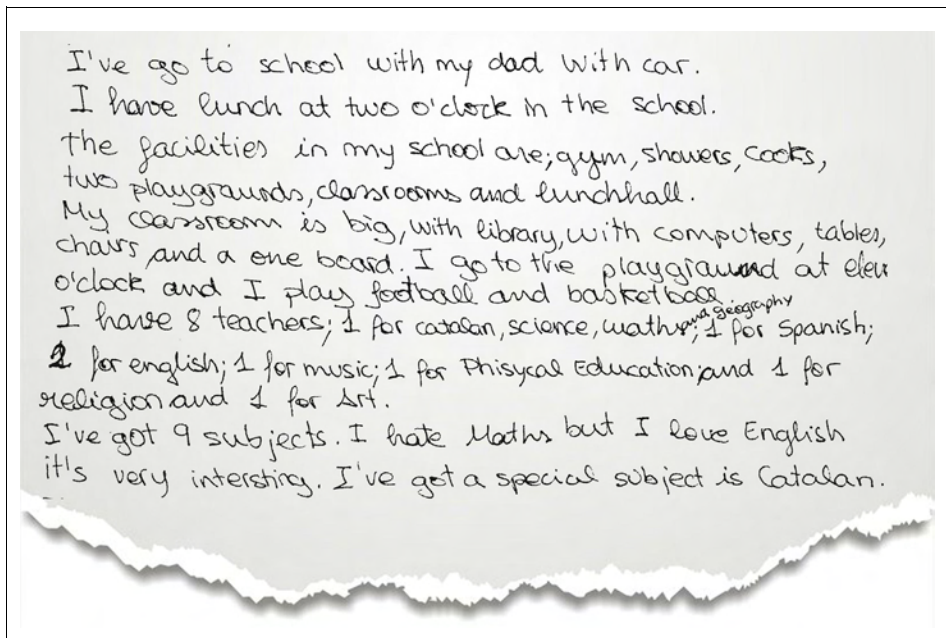 I've go to school with my dad with car.
I have lunch at two o'clock in the school.
the facilities in my school are; gym, showers, cooks,
two playgraunds, classrooms and lunchhall.
My classroom is big, with library, with computers, tables,
chairs, and a one board. I go to the playgraund at elev
o'clock and I play football and basketball.
and geography
I have 8 teachers; 1 for catalan, science, maths; 1 for Spanish;
2 for english; 1 for music; 1 for Phisycal Education; and 1 for
religion and 1 for Art.
I've got 9 subjects. I hate Maths but I love English
it's very intersting. I've got a special subject is Catalan.